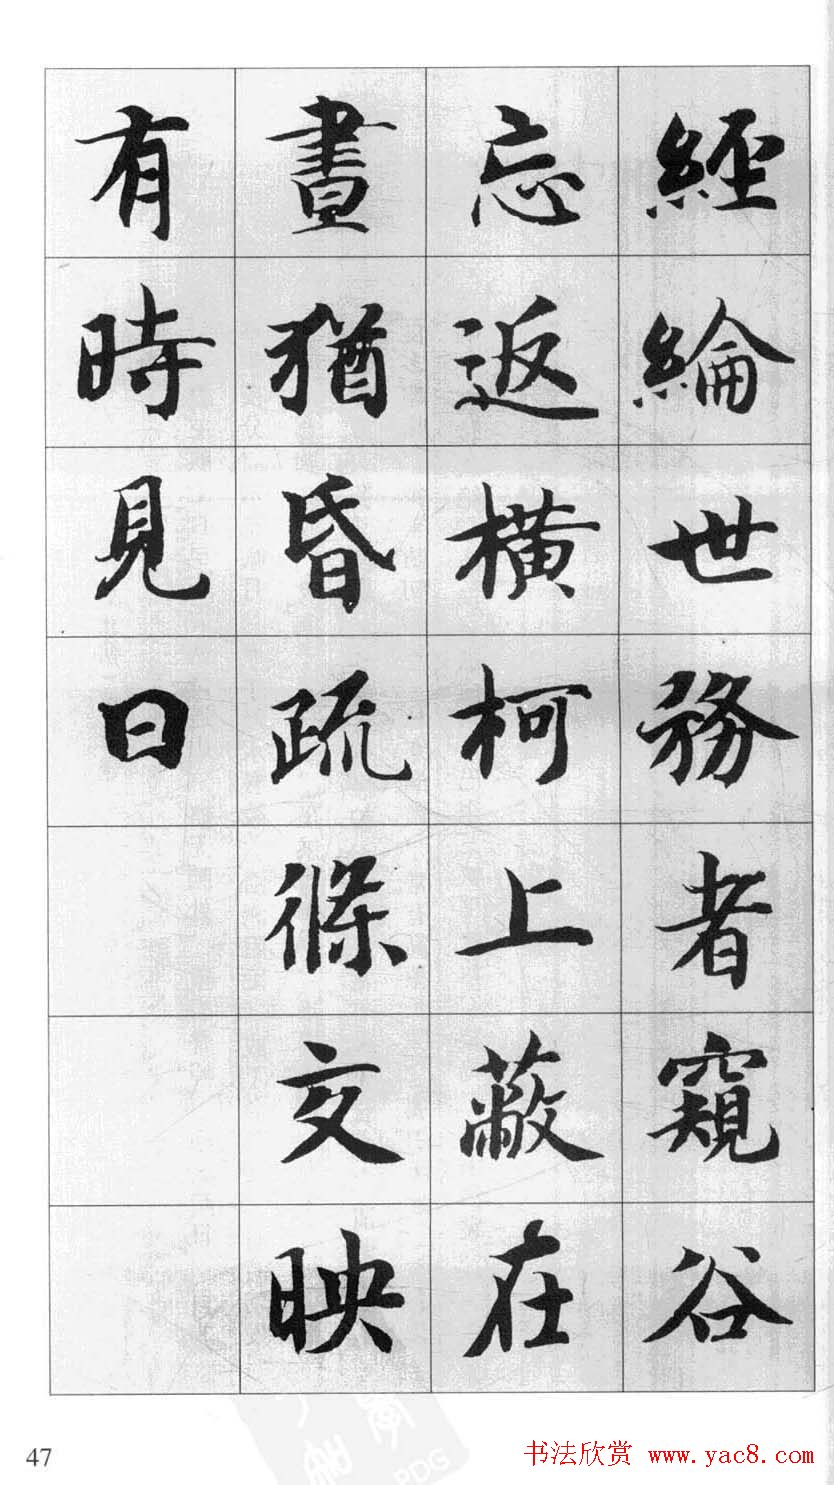 經綸世務者窺谷
忘返橫柯上蔽在
晝猶昏疏條交映
有時見日
47
书法欣赏 www.yac8.com